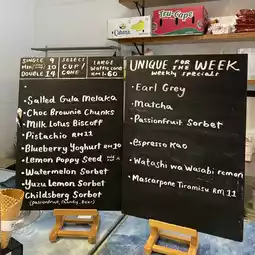 Cabana
Tru-Cape
SINGLE 9
10
DOUBLE 14
SELECT
CUP/
CONE
LARGE
Wafflecone
RM1.60
• Salted Gula Melaka
• Choc Brownie Chunks
• Milk Lotus Biscoff
• Pistachio RM11
• Blueberry Yoghurt RM10
• Lemon Poppy Seed
• Watermelon Sorbet
• Yuzu Lemon Sorbet
• Childsberg Sorbet
UNIQUE FOR THE WEEK
weekly specials
• Earl Grey
• Matcha
• Passionfruit Sorbet
• Espresso KAO
• Watashi wa Wasabi remon
• Mascarpone Tiramisu RM 11